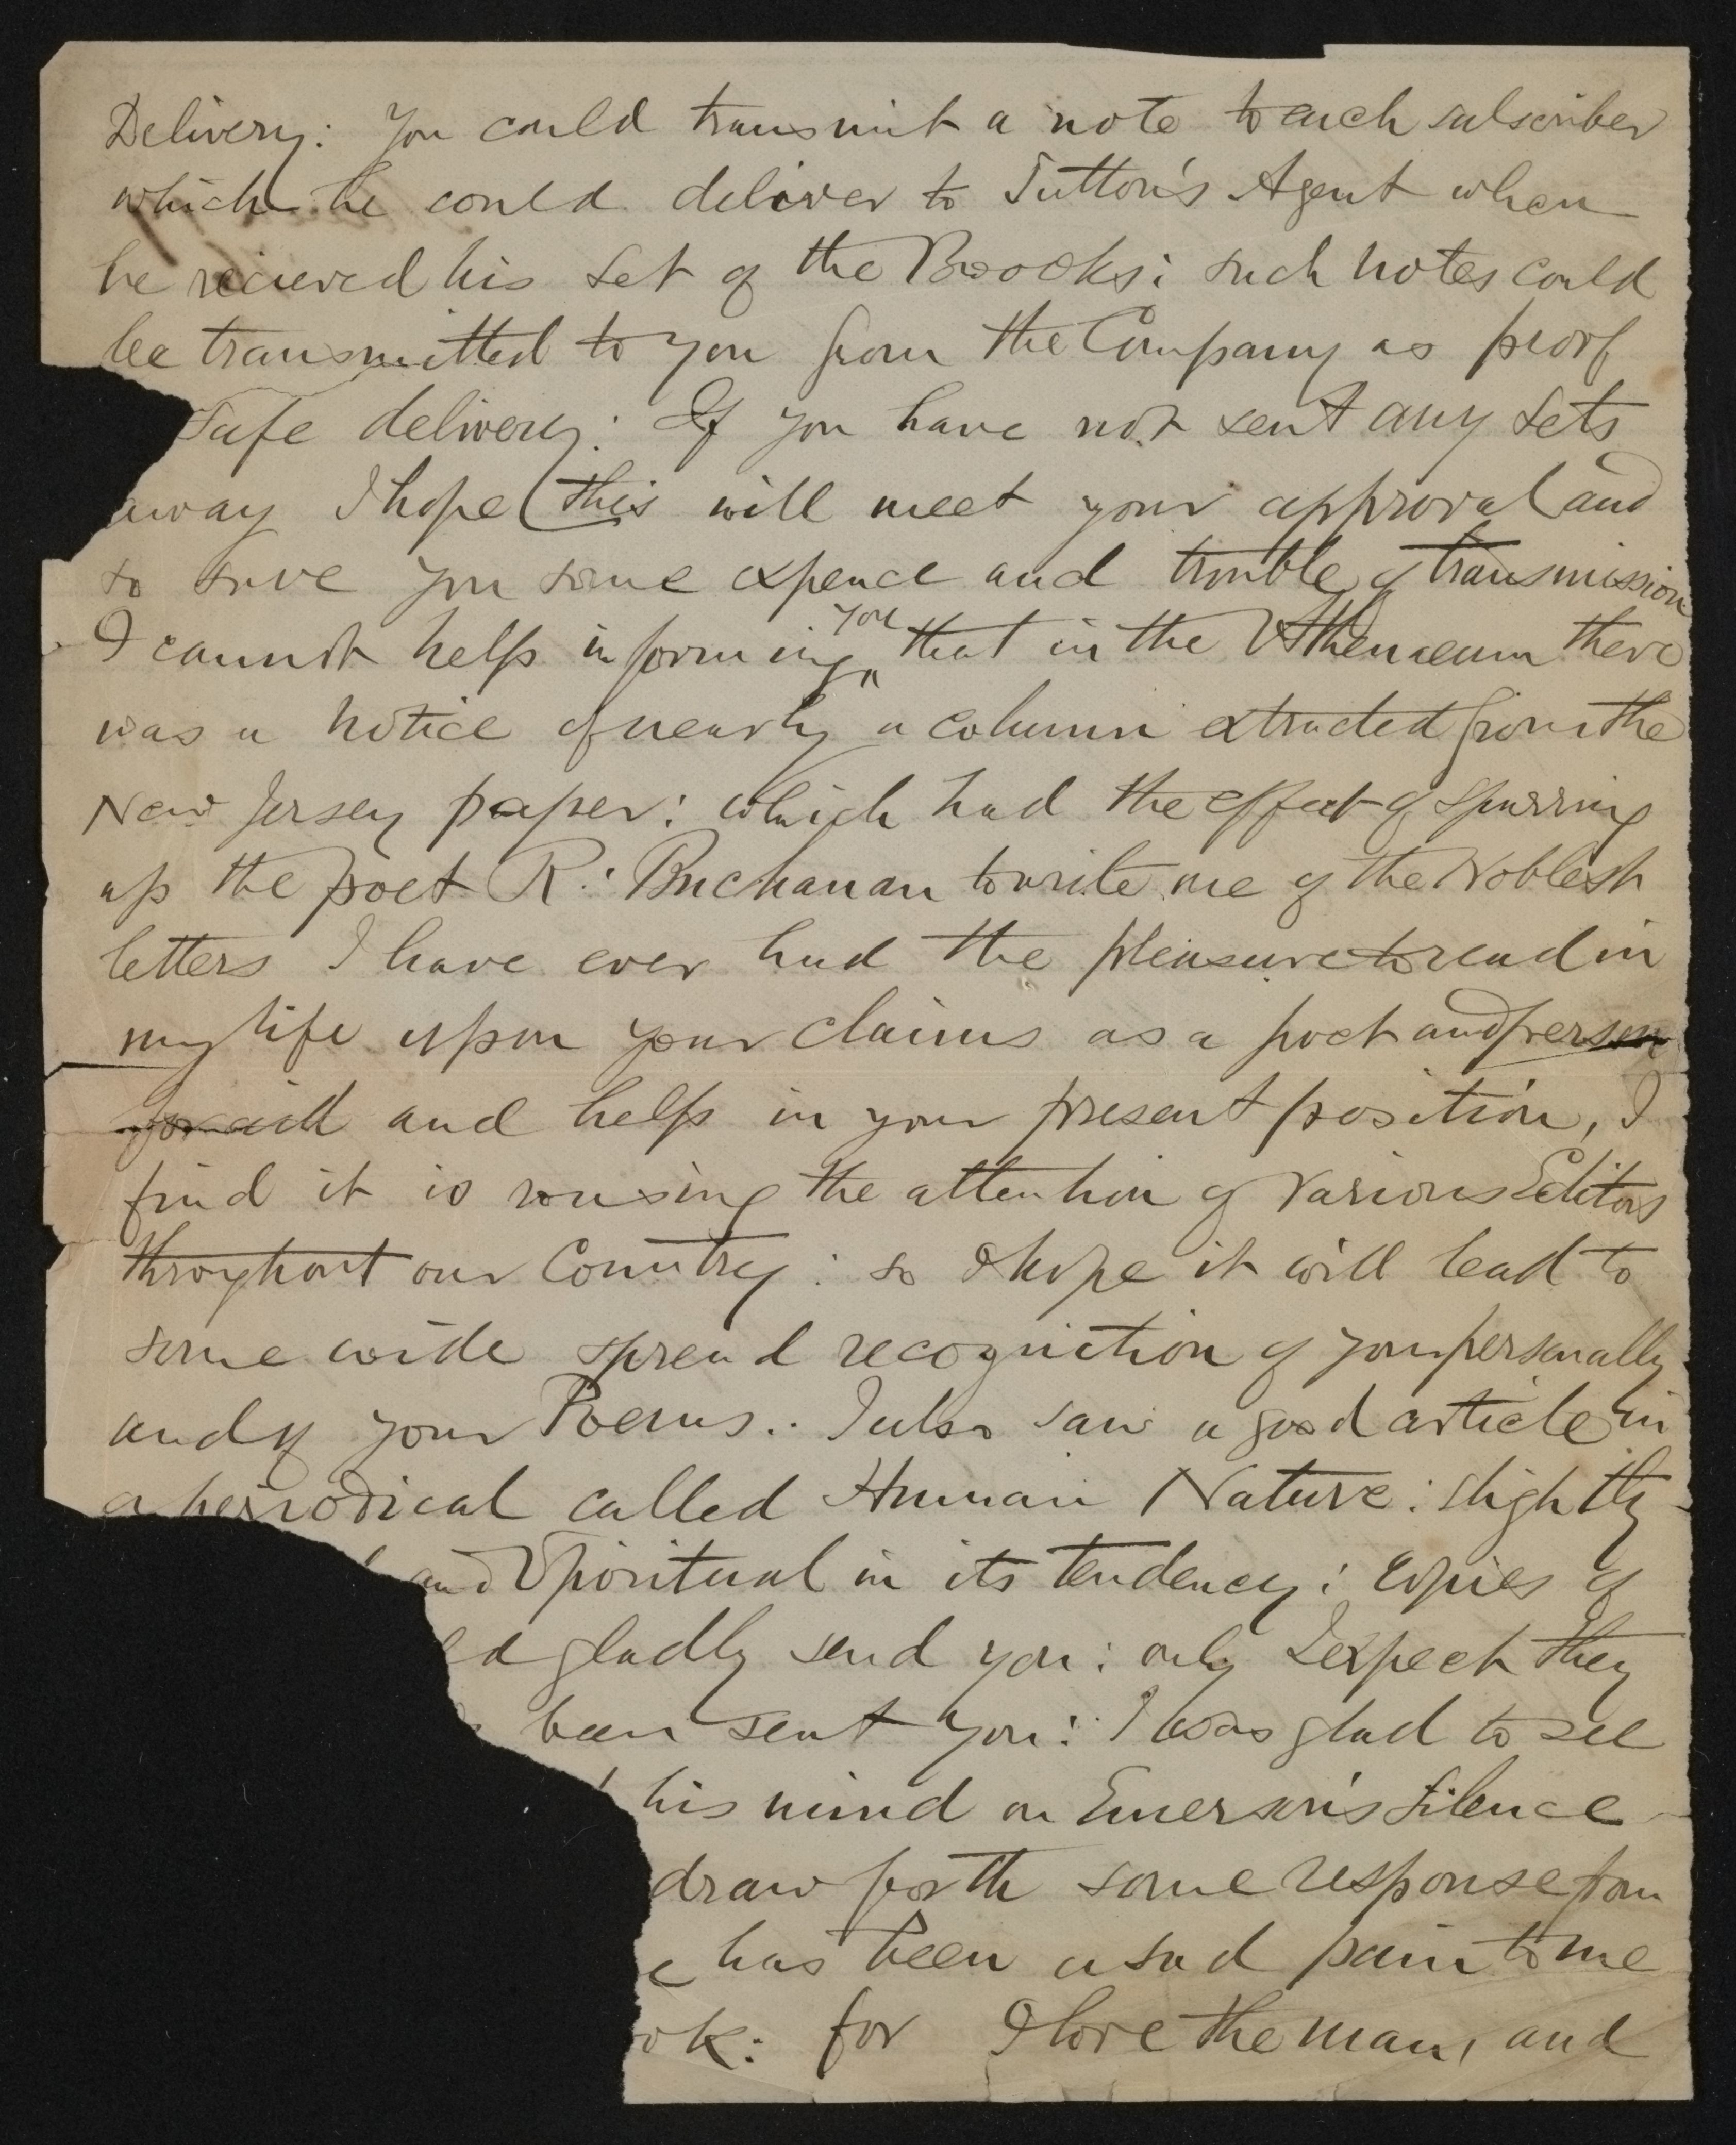 Delivery: You could transmit a note to each subscriber
which he could deliver to Sutton's Agent when
he recieved his set of the Books: such notes could
be transmitted to you from the Company as proof
Safe delivery: If you have not sent any sets
away I hope this will meet your approval and
so save you some expence and trouble of transmission
I cannot help informing you that in the Athenaeum there
was a notice of nearly a column extracted from the
New Jersey paper: which had the effect of spurring
up the poet R: Buchanan to write me of the Noblest
letters I have ever had the pleasure to read in
my life upon your claims as a poet and person
for aid and help in your present position, I
find it is rousing the attention of various Editors
throughout our Country: so I hope it will lead to
some wide spread recognition of you personally
and of your Poems.. I also saw a good article in
a periodical called Human Nature: slightly
and Spiritual in its tendency: copies of
gladly send you: only I expect they
been sent you: I was glad to see
his mind on Emerson's silence
draw forth some response from
has been a sad pain to me
ok: for I love the man, and